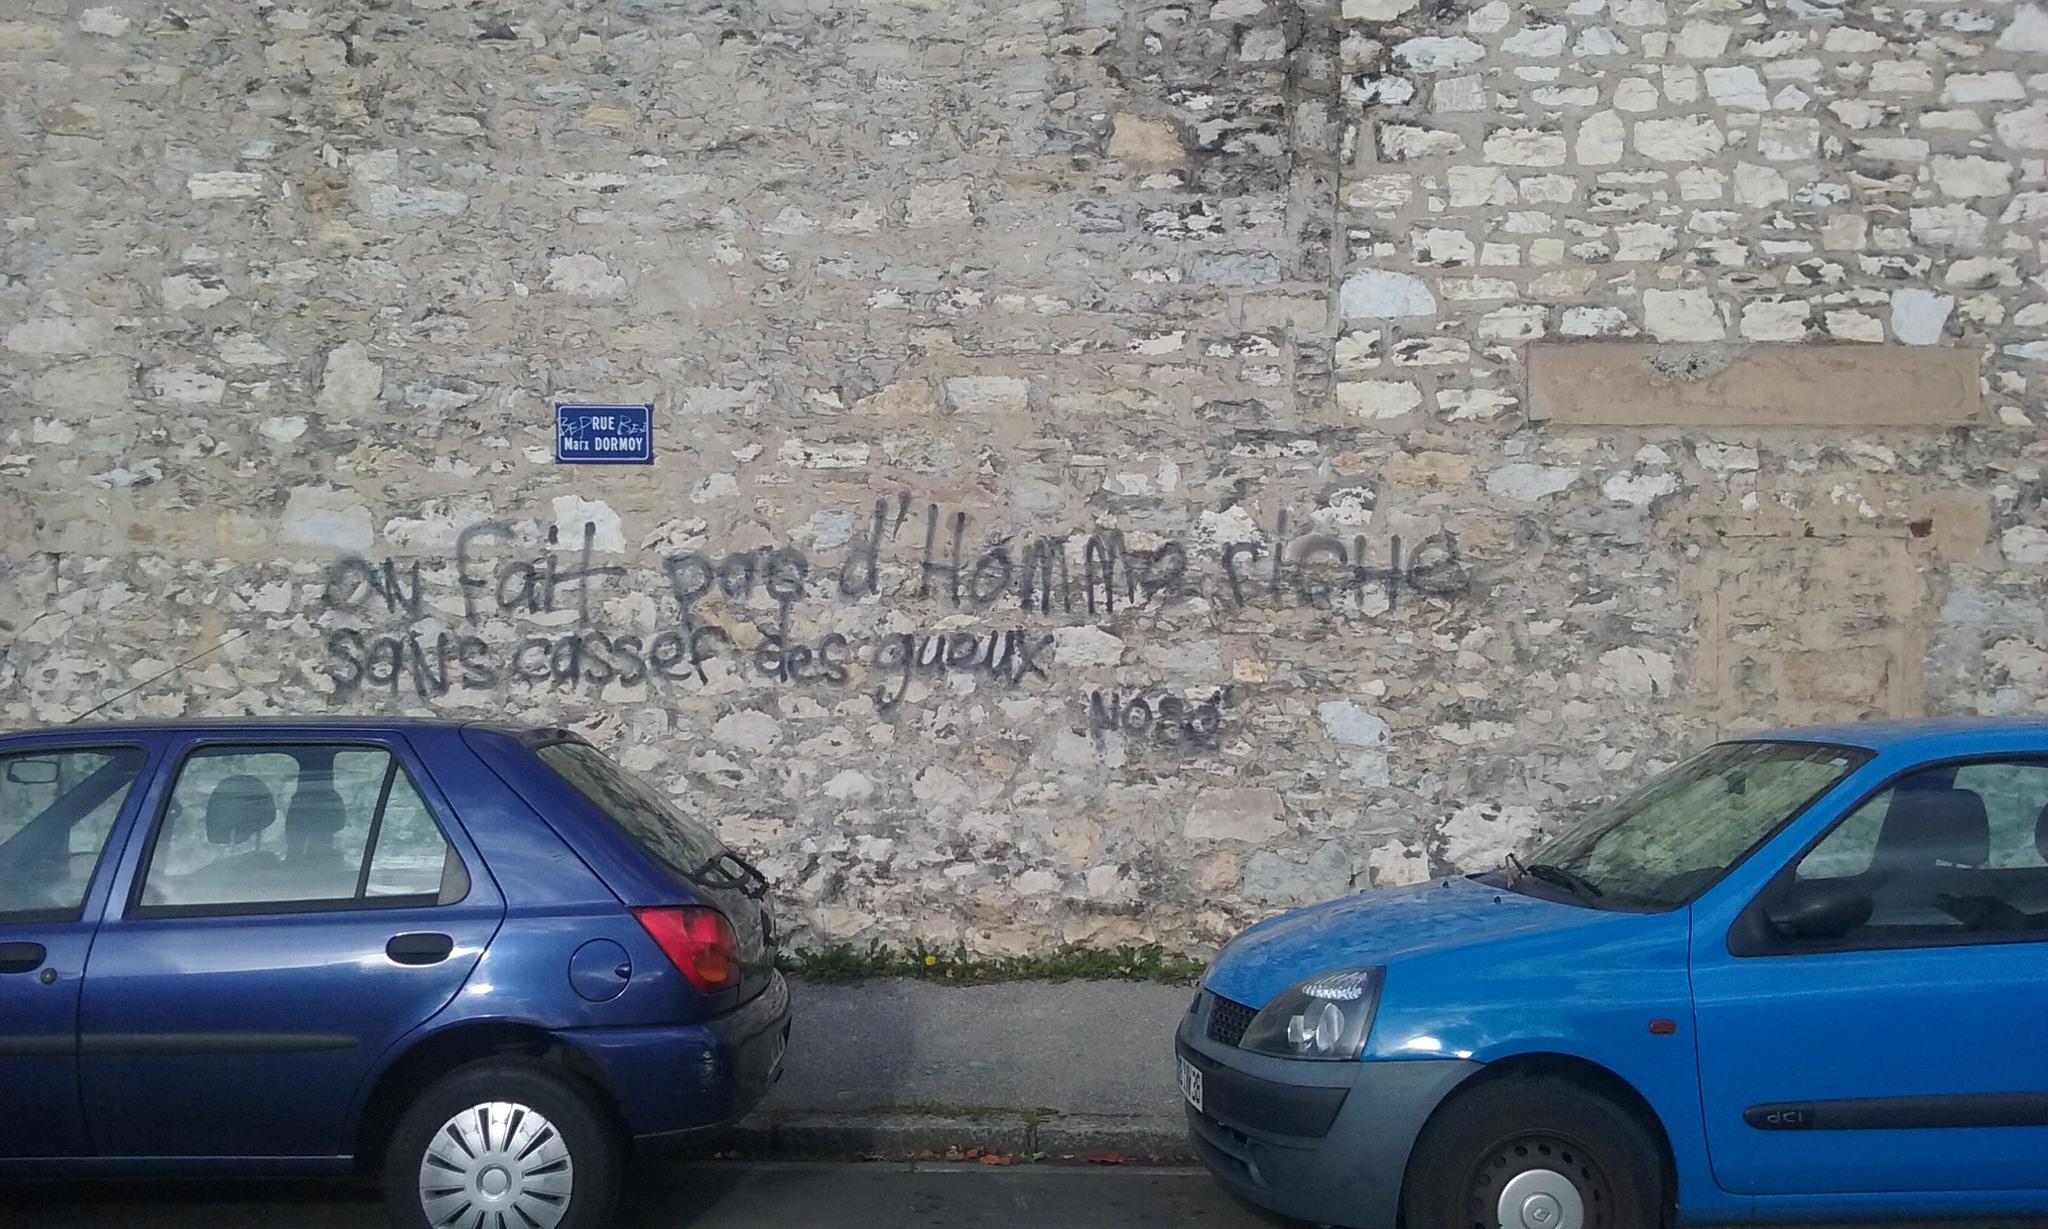 RUE
Marx DORMOY
on fait pas d'Homme riCHe
sans casser des gueux
dCi